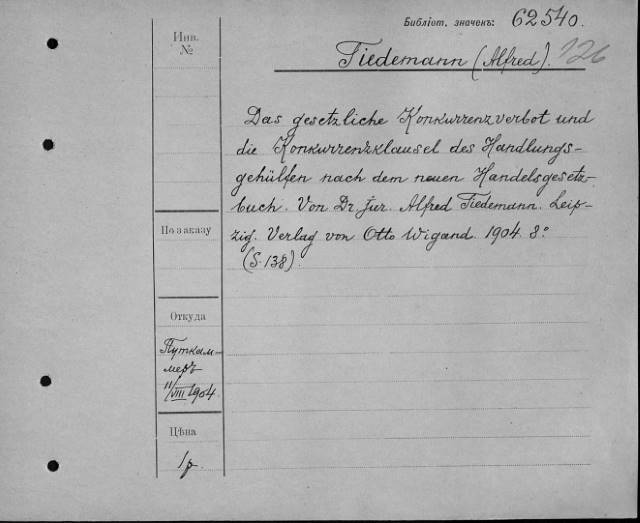 Библіот. значекъ: 62540.
Инв.
№
Tiedemann (Alfred). 126
Das gesetzliche Konkurrenzverbot und
die Konkurrenzklausel des Handlungs-
gehülfen nach dem neuen Handelsgesetz-
buch. Von Dr. jur. Alfred Tiedemann. Leip-
zig. Verlag von Otto Wigand. 1904. 8°
(S. 138).
По заказу
Откуда
Путкам-
меръ
11/VIII 1904
Цѣна
1 р.